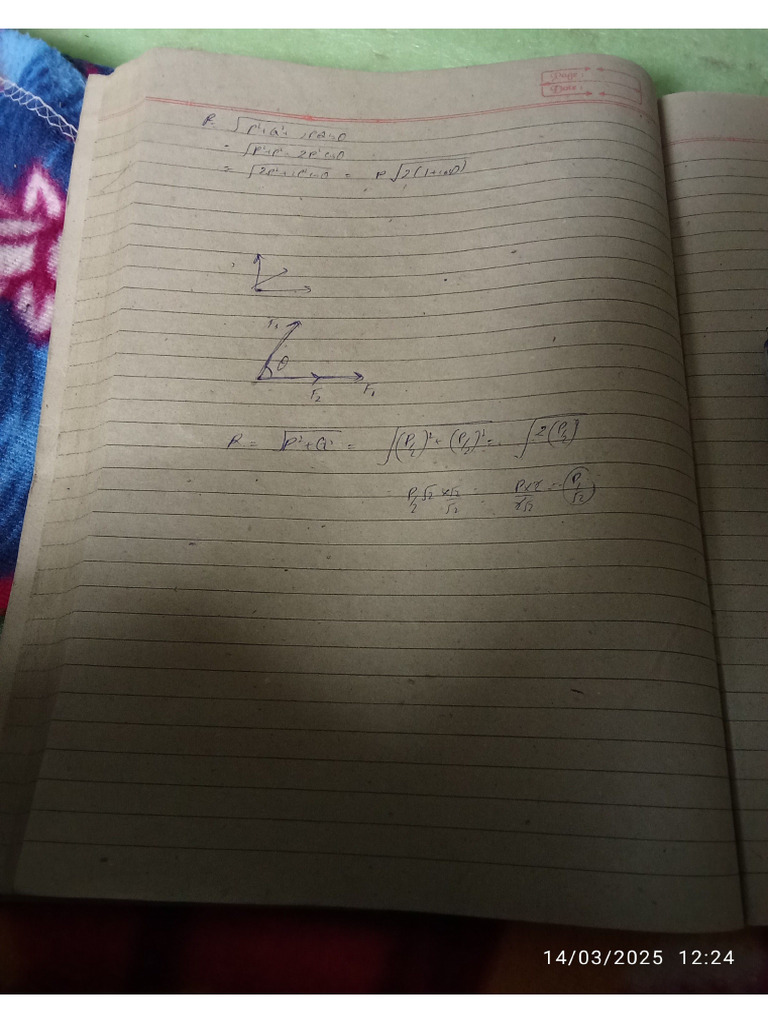 Page:
Date:
R = √P²+Q²+2PQcosθ
= √P²+P²- 2P²cosθ
= √2P²+2P²cosθ = P√2(1+cosθ)
F₁
θ
F₂ F₁
R = √P²+Q² = √(P/2)²+(P/2)² = √2(P/2)²
P/2 √2 × √2/√2 = P×2/2√2 = P/√2
14/03/2025 12:24